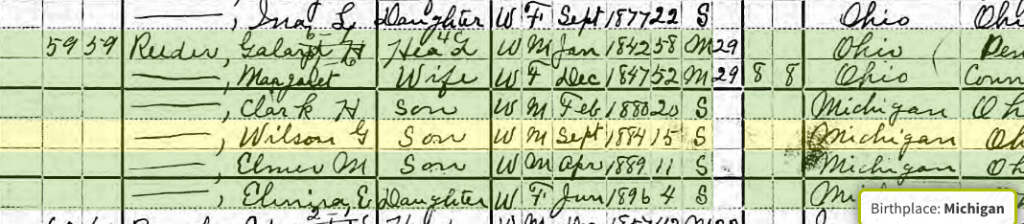 ——, Ina L Daughter W F Sept 1877 22 S Ohio
59 59 Reeder, H Head W M Jan 1842 58 M 29 Ohio
——, Margaret Wife W F Dec 1847 52 M 29 8 8 Ohio
——, Clark H Son W M Feb 1880 20 S Michigan Oh
——, Wilson G Son W M Sept 1884 15 S Michigan Oh
——, Elmer M Son W M Apr 1889 11 S Michigan Oh
——, E Daughter W F Jun 1896 4 S Mi
Birthplace: Michigan